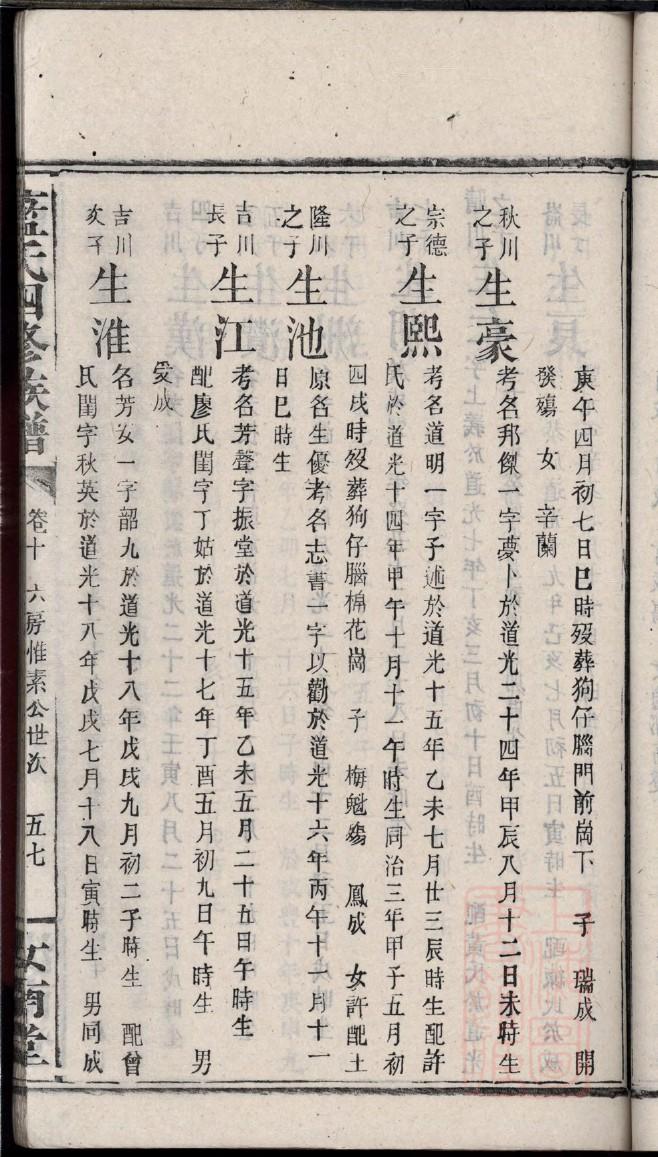 庚午四月初七日巳時歿葬狗仔腦門前崗下　子　瑞成　開
發殤　女　辛蘭
秋川之子　生豪　考名邦傑一字夢卜於道光二十四年甲辰八月十二日未時生
宗德之子　生熙　考名道明一字子述於道光十五年乙未七月廿三辰時生配許
氏於道光十四年甲午十月十一午時生同治三年甲子五月初
四戌時歿葬狗仔腦棉花崗　子　梅魁殤　鳳成　女許配土
隆川之子　生池　原名生優考名志書一字以勸於道光十六年丙午十六月十一
日巳時生
吉川長子　生江　考名芳聲字振堂於道光十五年乙未五月二十五日午時生
配廖氏閨字丁姑於道光十七年丁酉五月初九日午時生　男
愛成
吉川次子　生淮　名芳女一字韶九於道光十八年戊戌九月初二子時生　配曾
氏閨字秋英於道光十八年戊戌七月十八日寅時生　男同成
氏四修族譜　卷十　六房惟素公世次　五七